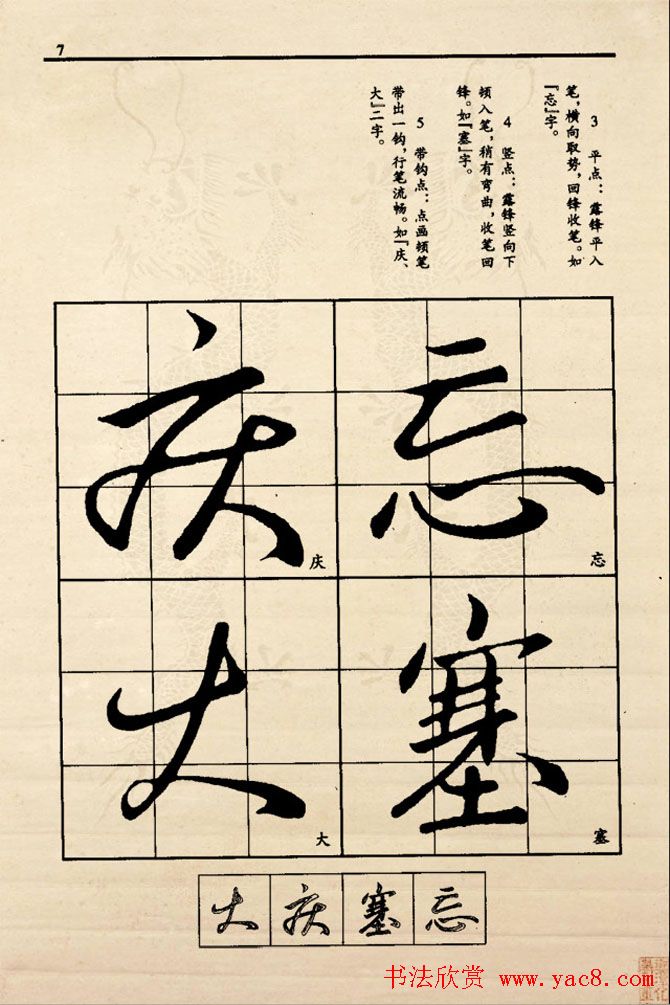 7
3 平点：露锋平入
笔，横向取势，回锋收笔。如
『忘』字。
4 竖点：露锋竖向下
顿入笔，稍有弯曲，收笔回
锋。如『塞』字。
5 带钩点：点画顿笔
带出一钩，行笔流畅。如『庆、
大』二字。
忘
忘
庆
庆
塞
塞
大
大
忘
塞
庆
大
书法欣赏 www.yac8.com